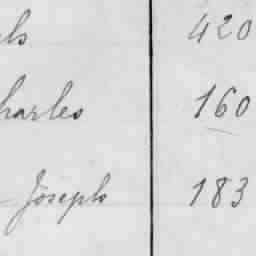 420
harles 160
Joseph 183